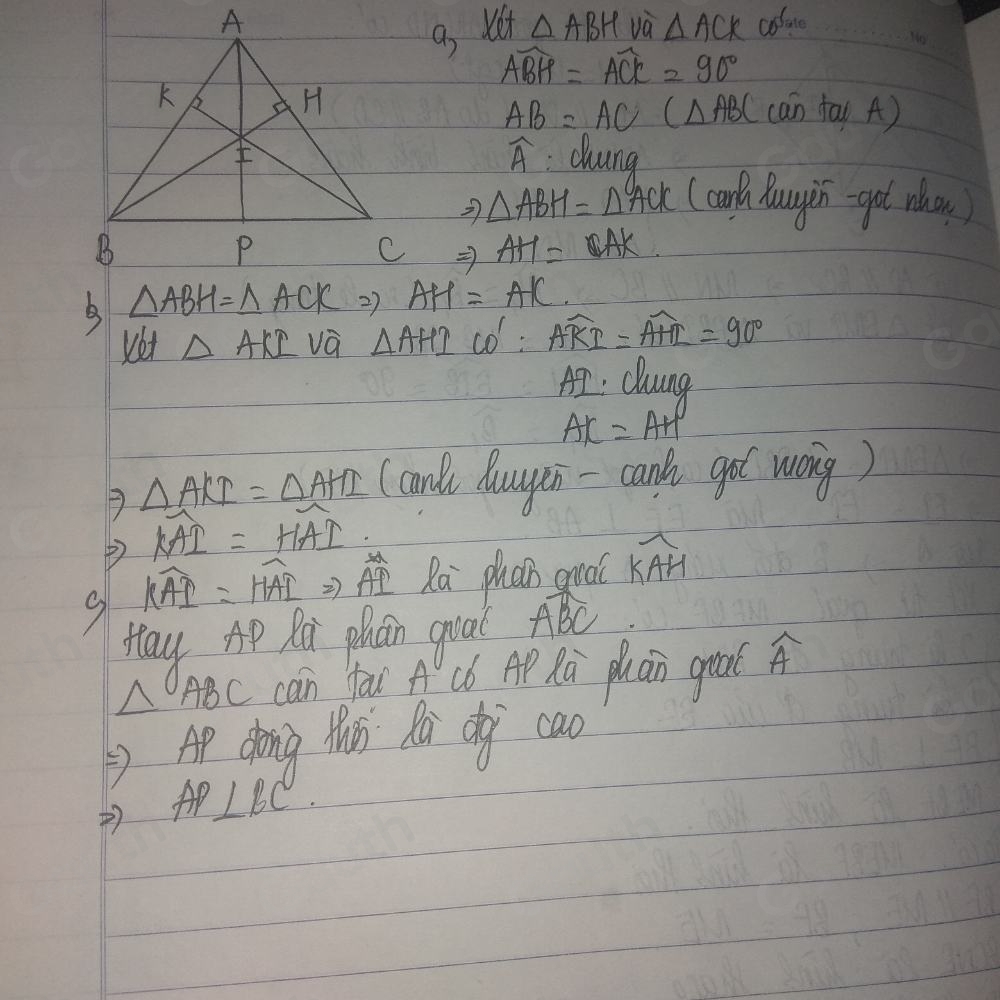 A
K
H
I
B
P
C
a, Xét △ ABH và △ ACK có:
ABH = ACK = 90°
AB = AC (△ABC cân tại A)
Â : chung
⇒ △ABH = △ACK (cạnh huyền - góc nhọn)
⇒ AH = AK.
b, △ABH = △ ACK ⇒ AH = AK.
Xét △ AKI và △AHI có : AKI = AHI = 90°
AI : chung
AK = AH
⇒ △AKI = △AHI (cạnh huyền - cạnh góc vuông)
⇒ KAI = HAI.
c, KAI = HAI ⇒ AI là phân giác KAH
Hay AP là phân giác ABC.
△ ABC cân tại A có AP là phân giác Â
⇒ AP đồng thời là đg cao
⇒ AP ⊥ BC.